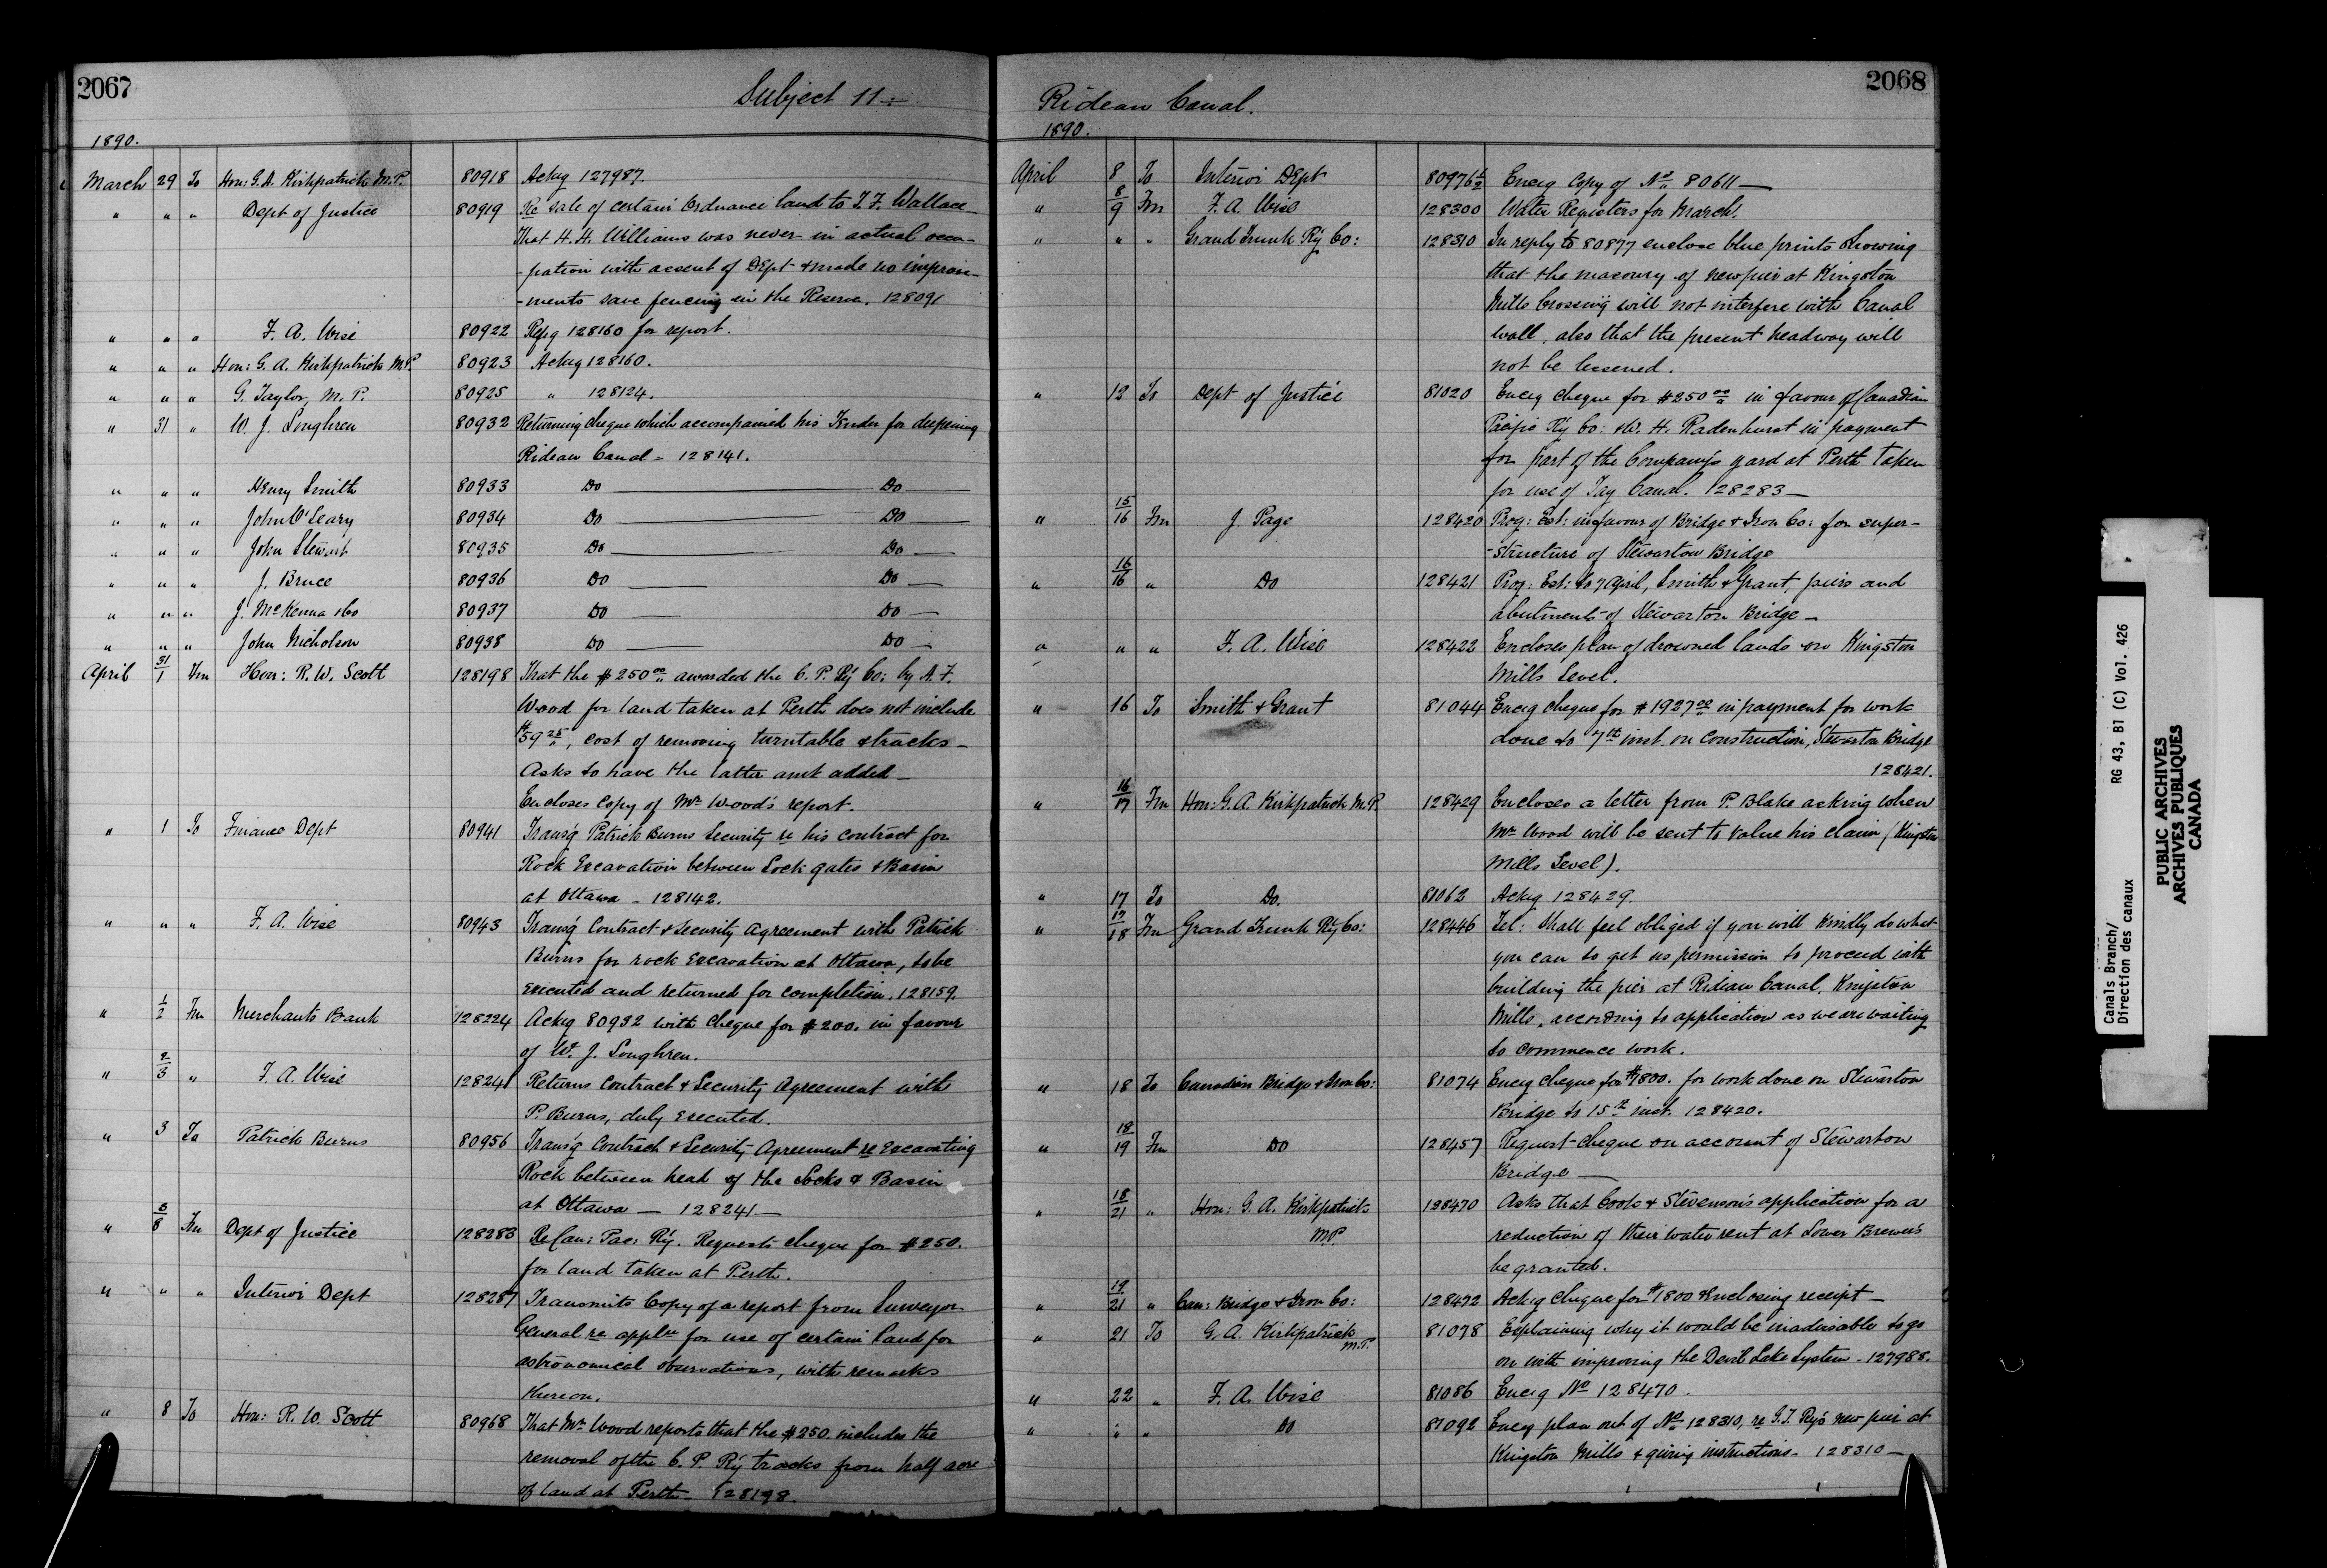 2067
Subject 11:-
1890.
March 29 To Hon: G. A. Kirkpatrick M.P. 80918 Ackg 127987.
" " " Dept of Justice 80919 Re sale of certain Ordnance land to T. F. Wallace
That H. H. Williams was never in actual occu-
-pation with assent of Dept & made no improve-
-ments save fencing in the Reserve. 128091
" " " F. A. Wise 80922 Refg 128160 for report.
" " " Hon: G. A. Kirkpatrick M.P. 80923 Ackg 128160.
" " " G. Taylor, M.P. 80925 " 128124.
" 31 " W. J. Loughren 80932 Returning cheque which accompanied his Tender for deepening
Rideau Canal - 128141.
" " " Henry Smith 80933 Do Do
" " " John O'Leary 80934 Do Do
" " " John Stewart 80935 Do Do
" " " J. Bruce 80936 Do Do
" " " J. McKenna & Co 80937 Do Do
" " " John Nicholson 80938 Do Do
April 31/1 Fm Hon: R. W. Scott 128198 That the $250.00 awarded the C. P. Ry Co: by A. F.
Wood for land taken at Perth does not include
$59.25, cost of removing turntable & tracks -
Asks to have the latter amt added -
Encloses copy of Mr Wood's report.
" 1 To Finance Dept 80941 Transg Patrick Burns Security re his contract for
Rock Excavation between Lock gates & Basin
at Ottawa - 128142.
" " " F. A. Wise 80943 Transg Contract & Security Agreement with Patrick
Burns for rock excavation at Ottawa, to be
executed and returned for completion. 128159.
" 1/2 Fm Merchants Bank 128224 Ackg 80932 with cheque for $200. in favour
of W. J. Loughren.
" 2/3 " F. A. Wise 128241 Returns Contract & Security Agreement with
P. Burns, duly executed.
" 3 To Patrick Burns 80956 Transg Contract & Security Agreement re Excavating
Rock between head of the Locks & Basin
at Ottawa - 128241 -
" 3/8 Fm Dept of Justice 128283 Re Can: Pac: Ry. Requests cheque for $250.
for land taken at Perth.
" " " Interior Dept 128287 Transmits Copy of a report from Surveyor
General re appln for use of certain land for
astronomical observations, with remarks
thereon.
" 8 To Hon: R. W. Scott 80968 That Mr Wood reports that the $250. includes the
removal of the C. P. Ry tracks from half acre
of land at Perth - 128198.
2068
Rideau Canal.
1890.
April 8 To Interior Dept 80976½ Encg Copy of No 80611 -
" 8/9 Fm F. A. Wise 128300 Water Registers for March.
" " " Grand Trunk Ry Co: 128310 In reply to 80877 enclose blue prints showing
that the masonry of new pier at Kingston
Mills Crossing will not interfere with Canal
wall, also that the present headway will
not be lessened.
" 12 To Dept of Justice 81020 Encg cheque for $250.00 in favour of Canadian
Pacific Ry Co: & W. H. Radenhurst in payment
for part of the Company's yard at Perth taken
for use of Tay Canal. 128283 -
" 15/16 Fm J. Page 128420 Prog: Est: in favour of Bridge & Iron Co: for super-
-structure of Stewarton Bridge
" 16/16 " Do 128421 Prog: Est: to 7 April, Smith & Grant, piers and
abutments of Stewarton Bridge -
" " " F. A. Wise 128422 Encloses plan of drowned lands on Kingston
Mills Level.
" 16 To Smith & Grant 81044 Encg cheque for $1927.00 in payment for work
done to 7th inst. on Construction, Stewarton Bridge
128421.
" 16/17 Fm Hon: G. A. Kirkpatrick M.P. 128429 Encloses a letter from P. Blake asking when
Mr Wood will be sent to value his claim (Kingston
Mills Level).
" 17 To Do. 81062 Ackg 128429.
" 17/18 Fm Grand Trunk Ry Co: 128446 Tel: Shall feel obliged if you will kindly do what
you can to get us permission to proceed with
building the pier at Rideau Canal, Kingston
Mills, according to application as we are waiting
to commence work.
" 18 To Canadian Bridge & Iron Co: 81074 Encg cheque for $1800. for work done on Stewarton
Bridge to 15th inst. 128420.
" 18/19 Fm Do 128457 Request cheque on account of Stewarton
Bridge -
" 18/21 " Hon: G. A. Kirkpatrick 128470 Asks that Cook & Stevenson's application for a
M.P. reduction of their water rent at Lower Brewer's
be granted.
" 19/21 " Can: Bridge & Iron Co: 128472 Ackg cheque for $1800 & enclosing receipt -
" 21 To G. A. Kirkpatrick M.P. 81078 Explaining why it would be inadvisable to go
on with improving the Devil Lake System - 127988.
" 22 " F. A. Wise 81086 Encg No 128470.
" " " Do 81092 Encg plan out of No 128310, re G. T. Ry's new pier at
Kingston Mills & giving instructions - 128310 -
Canals Branch/
Direction des canaux
RG 43, B1 (C) Vol. 426
PUBLIC ARCHIVES
ARCHIVES PUBLIQUES
CANADA